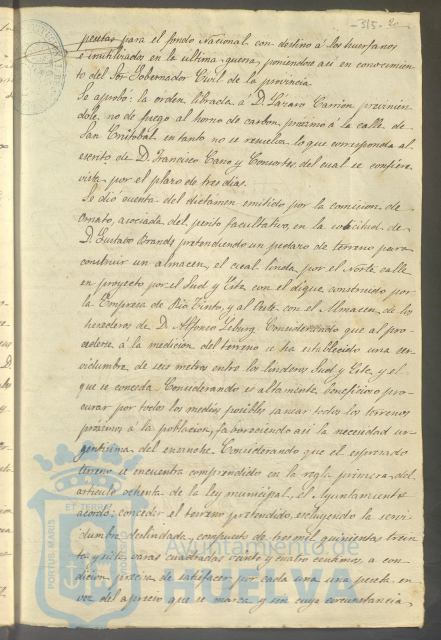 -315- 20
pesetas para el fondo Nacional con destino á los huerfanos
é inutilizados en la ultima guerra, poniendose asi en conocimien
to del Sor Gobernador Civil de la provincia.
Se aprobó: la orden librada á D. Lázaro Carrion previnien
dole, no de fuego al horno de carbon procsimo á la calle de
San Cristóbal en tanto no se resuelva lo que corresponda al
escrito de D. Francisco Cano y Consortes del cual se confiere
vista por el plazo de tres dias.
Se dió cuenta del dictamen emitido por la comision de
Ornato, asociada del perito facultativo, en la solicitud de
D. Gustavo Brandt pretendiendo un pedazo de terreno para
construir un almacen, el cual linda por el Norte calle
en proyecto por el Sud y Este con el dique construido por
la Empresa de Rio Tinto, y al Oeste con el Almacen de los
herederos de D. Alfonso Considerando que al pro-
cederse á la medicion del terreno se ha establecido una ser-
vidumbre de seis metros entre los linderos Sud y Este, y el
que se conceda. Considerando es altamente beneficioso pro-
curar por todos los medios posibles sanear todos los terrenos
procsimos á la poblacion, faboreciendo asi la necesidad ur-
gentisima del ensanche. Considerando que el espresado
terreno se encuentra comprendido en la regla primera del
articulo ochenta de la ley municipal, el Ayuntamiento
acordó: conceder el terreno pretendido, escluyendo la servi-
dumbre deslindada, compuesto de tres mil quinientas trein
ta y siete varas cuadradas veinte y cuatro centimos, a con-
dicion precisa de satisfacer por cada una una peseta en
vez del aprecio que se marca y sin cuya circunstancia
PORTUS MARIS
ET TERRÆ
Ayuntamiento de
HUELVA